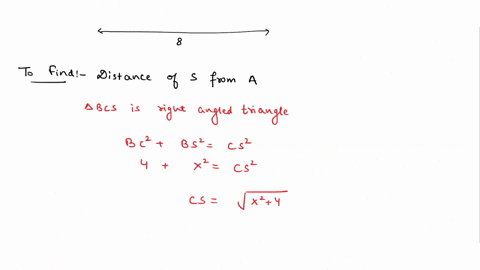 8
To find:- Distance of S from A
ΔBCS is right angled triangle
BC² + BS² = CS²
4 + x² = CS²
CS = √x²+4